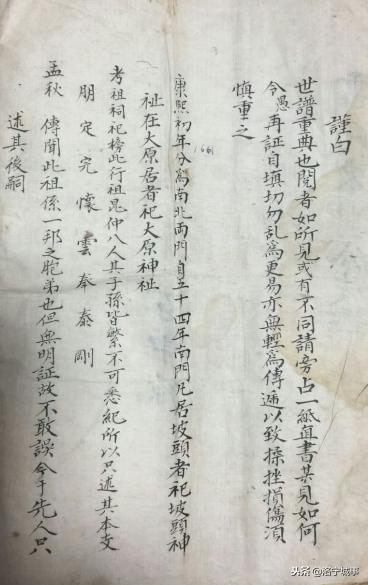 謹白
世譜重典也閱者如所見或有不同請旁占一紙直書其見如何
令愚再証自填切勿乱為更易亦無輕為傳遞以致操挫損傷須
慎重之
康熙初年分為南北両門自五十四年南門凡居坡頭者祀坡頭神
1661
祉在大原居者祀大原神祉
考祖祠祀榜此行祖昆仲八人其子孫皆繁不可悉紀所以只述其本支
朋定完懷雲奉泰剛
孟秋 傳聞此祖係一邦之胞弟也但無明証故不敢誤今于先人只
述其後嗣
头条 @洛宁城事